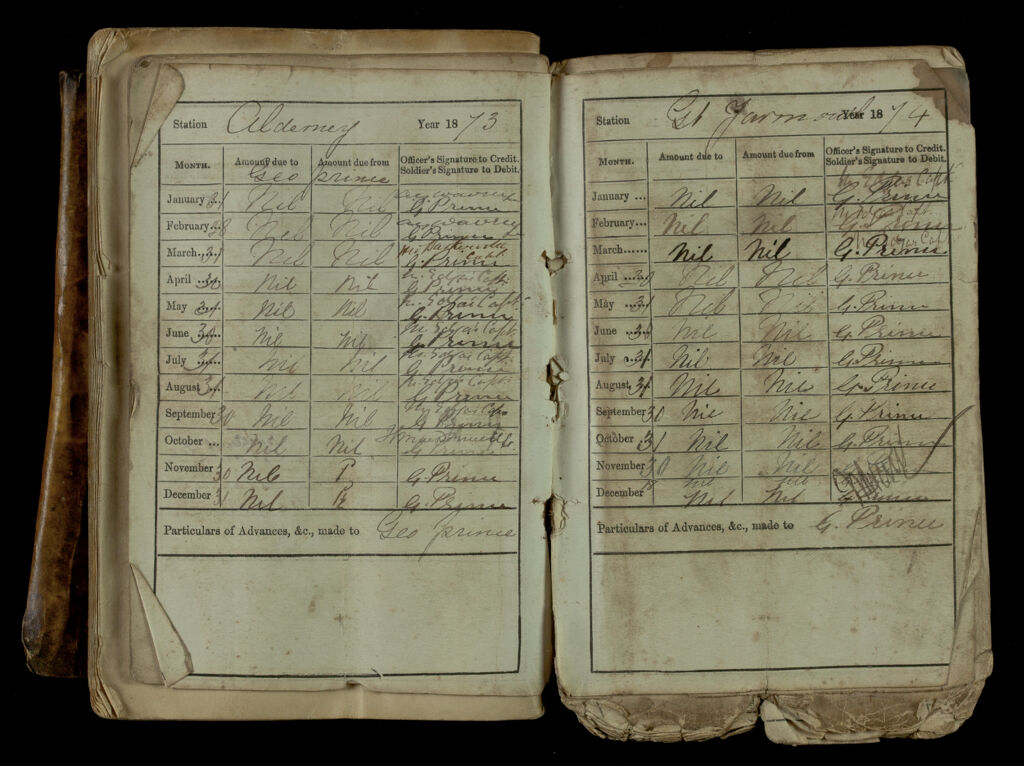 Station Alderney Year 1873
Month. Amount due to Amount due from Officer's Signature to Credit. Soldier's Signature to Debit.
Geo prince
January 31 Nil Nil G. Prince
February 28 Nil Nil G. Prince
March 31 Nil Nil G. Prince
April 30 Nil Nil G. Prince
May 31 Nil Nil G. Prince
June 30 Nil Nil G. Prince
July 31 Nil Nil G. Prince
August 31 Nil Nil G. Prince
September 30 Nil Nil G. Prince
October ... Nil Nil G. Prince
November 30 Nil G. Prince
December 31 Nil G. Prince
Particulars of Advances, &c., made to Geo prince
Station Gt Yarmouth Year 1874
Month. Amount due to Amount due from Officer's Signature to Credit. Soldier's Signature to Debit.
January ... Nil Nil G. Prince
February... Nil Nil G. Prince
March...... Nil Nil G. Prince
April 30 Nil Nil G. Prince
May 31 Nil Nil G. Prince
June 30 Nil Nil G. Prince
July 31 Nil Nil G. Prince
August, 31 Nil Nil G. Prince
September 30 Nil Nil G. Prince
October 31 Nil Nil G. Prince
November 30 Nil Nil
December Nil Nil G. Prince
Particulars of Advances, &c., made to G. Prince